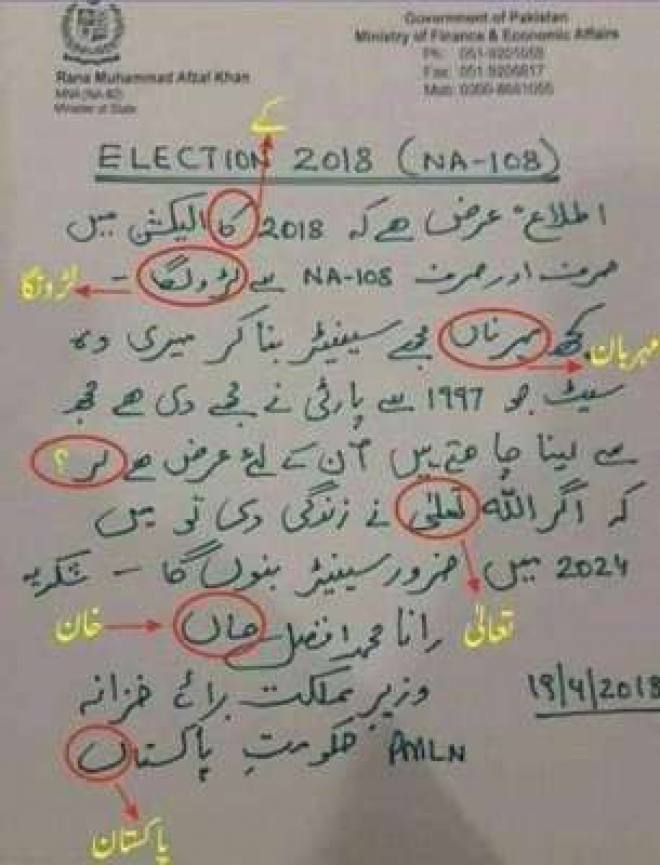 Government of Pakistan
Ministry of Finance & Economic Affairs
Ph: 051-9201058
Fax: 051-9206817
Mob: 0300-8661055
Rana Muhammad Afzal Khan
MNA (NA-82)
Minister of State
کے
ELECTION 2018 (NA-108)
اطلاع" عرض ہے کہ 2018 کا الیکشن میں
صرف اور صرف NA-108 سے لڑولگا -
لڑونگا
کچھ مہرناں مجھے سینیٹر بنا کر میری وہ
مہربان
سیٹ جو 1997 سے پارٹی نے مجھے دی ہے مجھ
سے لینا چاہتے ہیں آن کے لئے عرض ہے لر ؟
کہ اگر اللہ تعلیٰ نے زندگی دی تو میں
2024 میں ضرور سینیٹر بنوں گا - شکریہ
تعالیٰ
رانا محمد افضل حاں
خان
وزیر مملکت برائے خزانہ
19/4/2018
حکومتِ پاکستاں PMLN
پاکستان